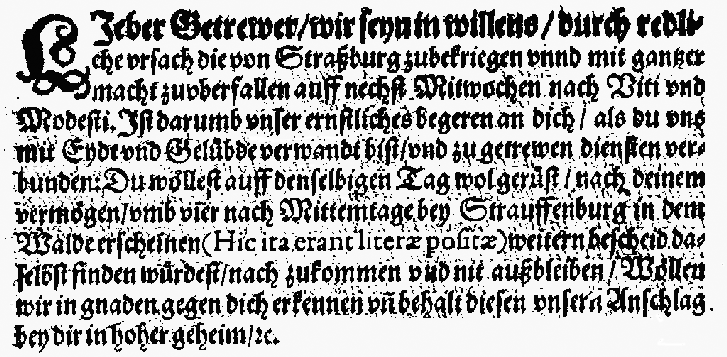 LJeber Getrewer/wir seyn in willens/durch redli-
che vrsach die von Straßburg zubekriegen vnnd mit gantzer
macht zuvberfallen auff nechst Mitwochen nach Viti vnd
Modesti. Ist darumb vnser ernstliches begeren an dich/ als du vns
mit Eydt vnd Gelübde verwandt bist/vnd zu getrewen diensten ver-
bunden: Du wöllest auff denselbigen Tag wol gerüst/nach deinem
vermögen/vmb vier nach Mittemtage bey Strauffenburg in dem
Walde erscheinen(Hic ita erant literæ positæ)weitern bescheid da-
selbst finden würdest/nach zukommen vnd nit außbleiben/Wöllen
wir in gnaden gegen dich erkennen vñ behalt diesen vnsern Anschlag
bey dir in hoher geheim/ꝛc.